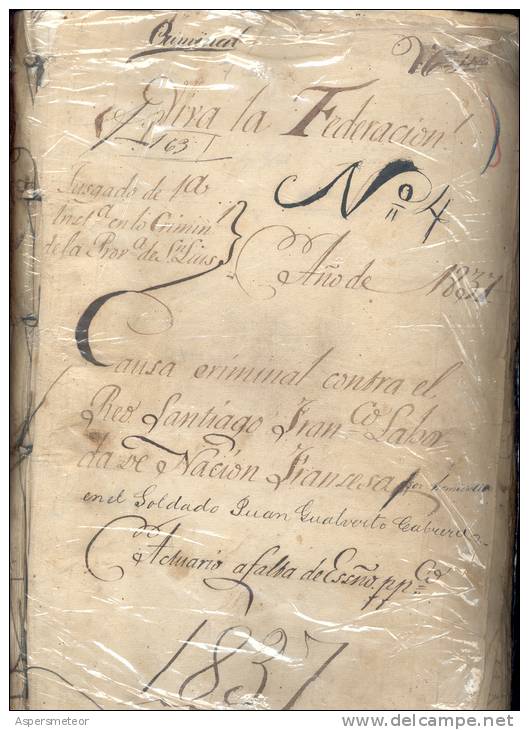 Criminal
Viva la Federacion!
163
Jusgado de 1a
Inst.a en lo Crimin.l
de la Prov.a de S.n Luis
No 4
Año de 1837
Causa criminal contra el
Reo Santiago Fran.co Labor-
da de Nación Fransesa por homicidio
en el Soldado Juan Gualverto Cabrera
Actuario a falta de Essño. pp.co
1837
Aspersmeteor
www.delcampe.net